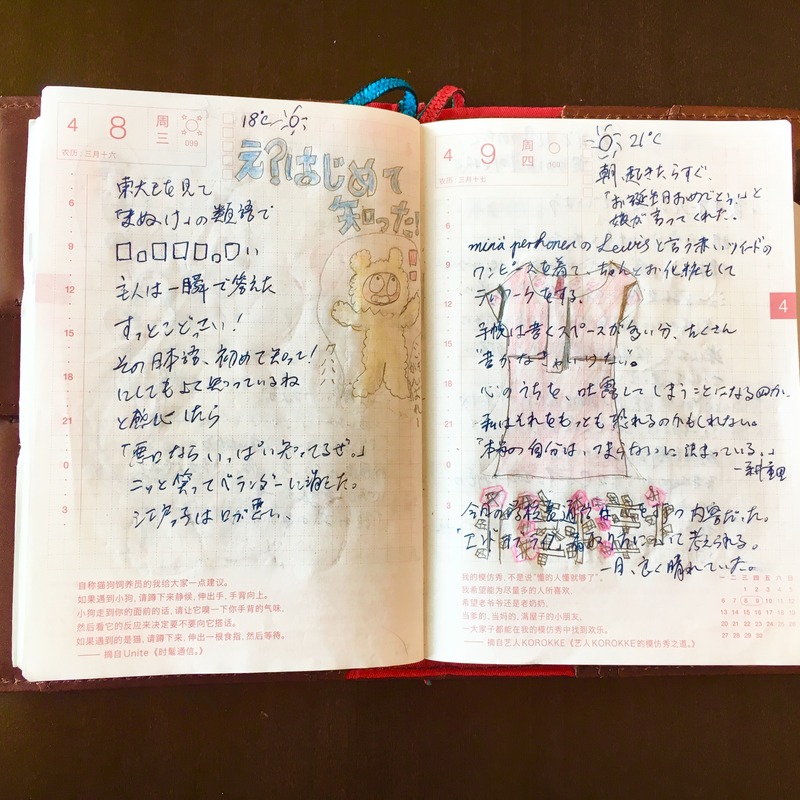 4 8 周三 099
农历:三月十六
18℃
え?はじめて
知った!
東大王を見て
「まぬけ」の類語で
□□□□□□い
主人は一瞬で答えた
すっとこどっこい!
その日本語、初めて知って!
にしてもよく知っているね
と感心したら
「悪口ならいっぱい知ってるぜ。」
ニッと笑ってベランダーに消えた。
江戸っ子は口が悪い、
6
9
12
15
18
21
0
3
自称猫狗饲养员的我给大家一点建议。
如果遇到小狗,请蹲下来静候,伸出手,手背向上。
小狗走到你的面前的话,请让它嗅一下你手背的气味,
然后看它的反应来决定要不要向它搭话。
如果遇到的是猫,请蹲下来,伸出一根食指,然后等待。
—— 摘自Unite《时髦通信。》
4 9 周四 100
农历:三月十七
21℃
朝、起きたらすぐ、
「お誕生日おめでとう!」と
娘が言ってくれた。
minä perhonenのLewisと言う赤いツイードの
ワンピースを着て、ちゃんとお化粧もして
テレワークをする。
手帳は書くスペースが多い分、たくさん
"書かなきゃいけない"。
心のうちを、吐露してしまうことになるのか、
私はそれをもっとも恐れるのかもしれない。
「本当の自分は、つまらないに決まっている。」
一日、良く晴れていた。
6
9
12
15
18
21
0
3
4
我的模仿秀,不是说“懂的人懂就够了”。
我希望能为尽量多的人所喜欢、
希望老爷爷还是老奶奶,
当爹的,当妈的,满屋子的小朋友,
一大家子都能在我的模仿秀中找到欢乐。
—— 摘自艺人KOROKKE《艺人KOROKKE的模仿秀之道。》
一 二 三 四 五 六 日
1 2 3 4 5
6 7 8 9 10 11 12
13 14 15 16 17 18 19
20 21 22 23 24 25 26
27 28 29 30